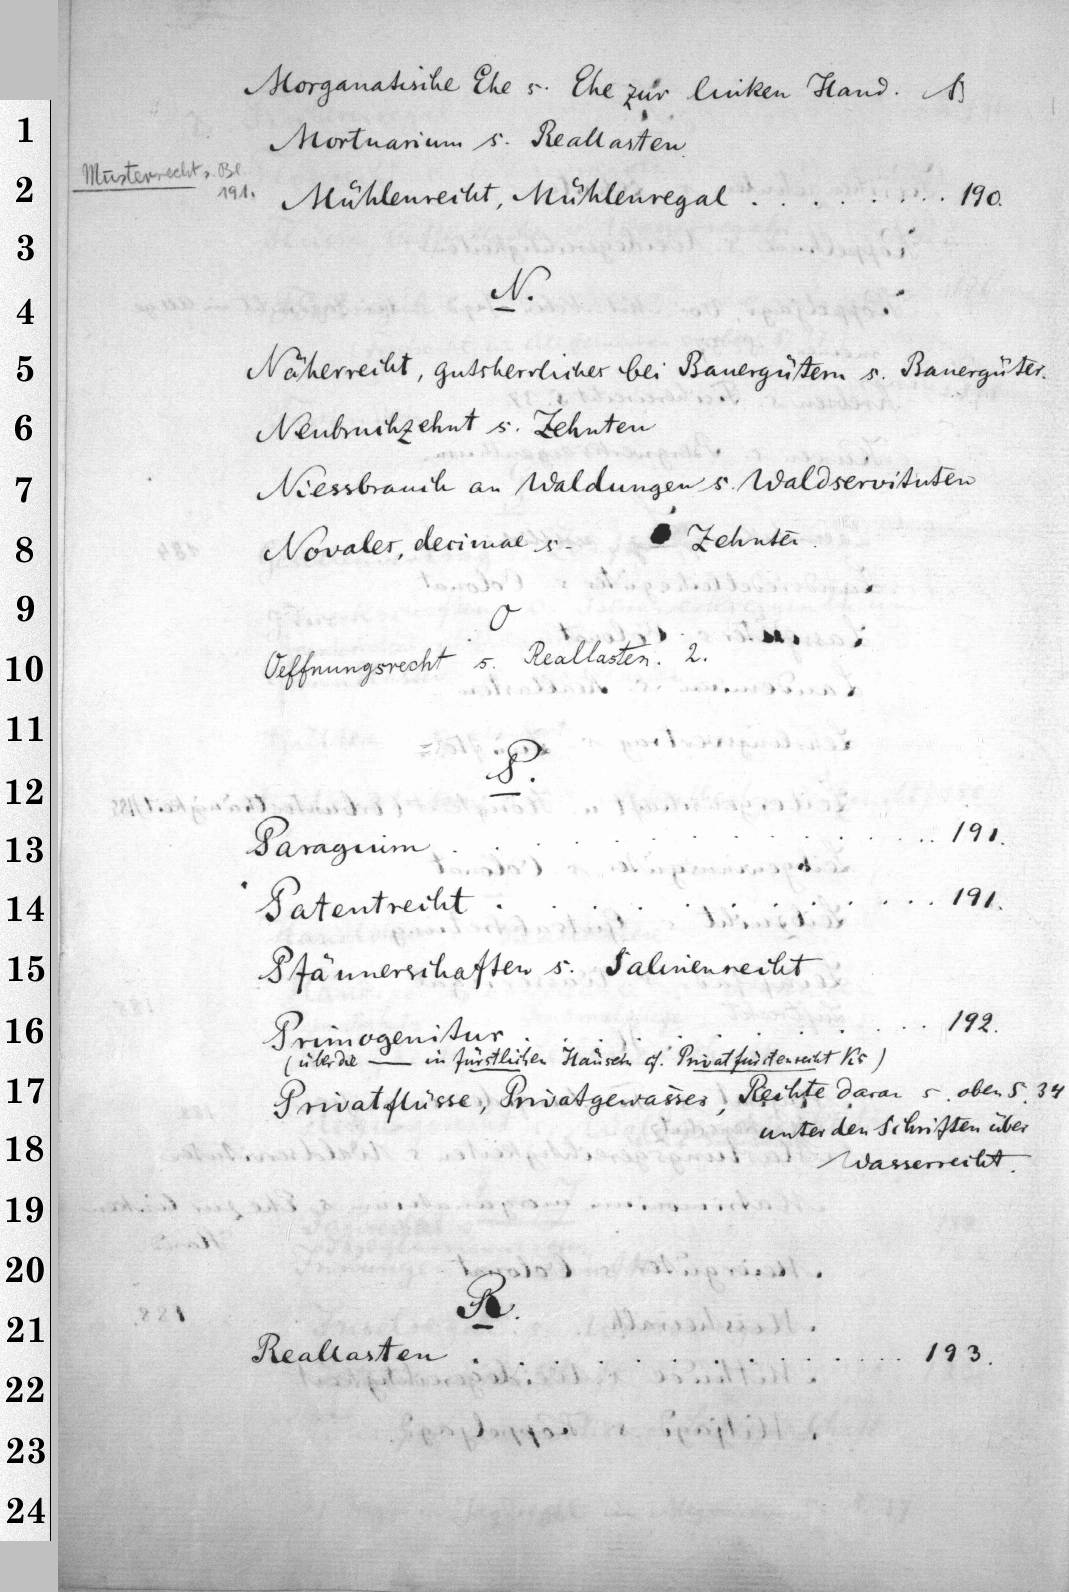 Morganatische Ehe s. Ehe zur linken Hand.
1
Mortuarium s. Reallasten
Musterrecht s. Bl
191.
2
Mühlenrecht, Mühlenregal . . . . . . . . 190.
3
N.
4
5
Näherrecht, gutsherrliches bei Bauergütern s. Bauergüter.
6
Neubruchzehnt s. Zehnten
7
Niessbrauch an Waldungen s. Waldservituten
8
Novales, decimae s. Zehnten.
9
O
10
Oeffnungsrecht s. Reallasten. 2.
11
P.
12
13
Paragium . . . . . . . . . . . . 191.
14
Patentrecht . . . . . . . . . . . 191.
15
Pfännerschaften s. Salinenrecht
16
Primogenitur . . . . . . . . . . 192.
(über die — in fürstlichen Häusern cf. Privatfürstenrecht)
17
Privatflüsse, Privatgewässer, Rechte daran s. oben S. 34
unter den Schriften über
18
Wasserrecht.
19
20
R.
21
Reallasten . . . . . . . . . . . 193.
22
23
24